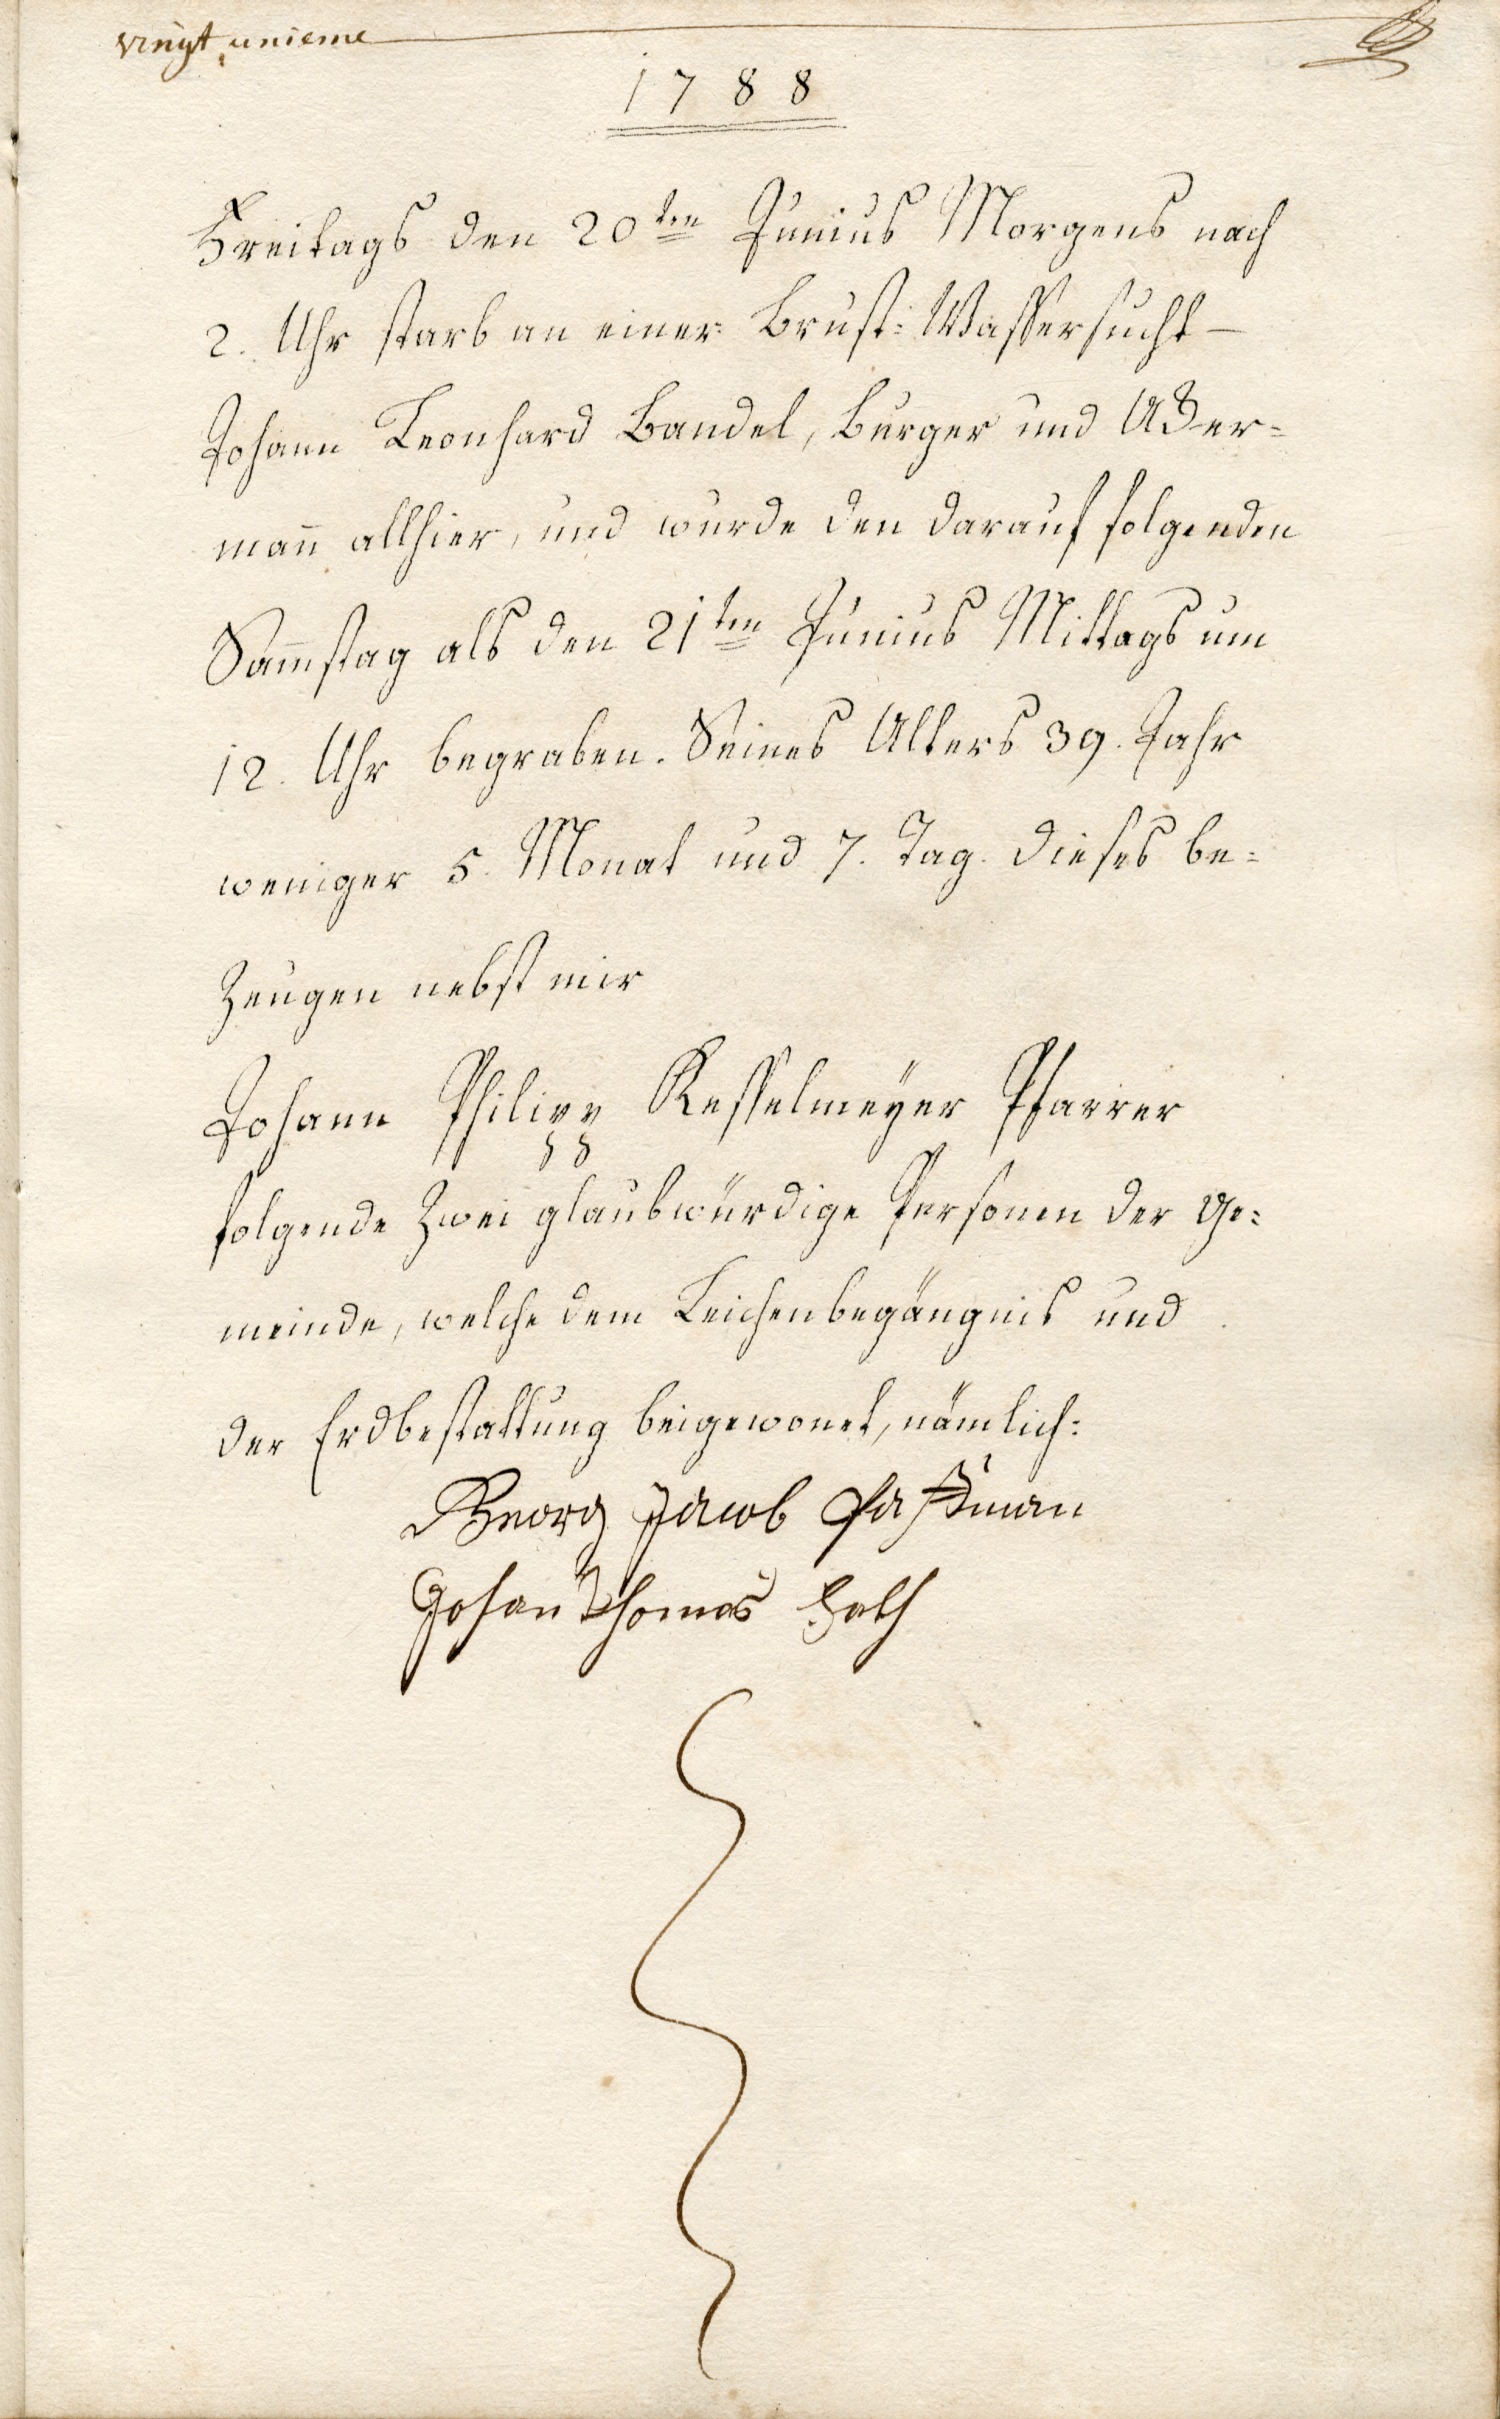 vingt unieme
1788
Freitags den 20ten Junius Morgens nach
2. Uhr starb an einer Brust-Wassersucht —
Johann Leonhard Bandel, Burger und Acker=
mañ allhier, und wurde den darauf folgenden
Sam̃stag als den 21ten Junius Mittags um
12. Uhr begraben. Seines Alters 39. Jahr
weniger 5. Monat und 7. Tag. Dieses be=
zeugen nebst mir
Johann Philipp Kesselmeÿer Pfarrer
folgende zwei glaubwürdige Personen der Ge=
meinde, welche dem Leichenbegängnis und
der Erdbestattung beigewonet, nämlich:
Georg Jacob
Johan Thomas